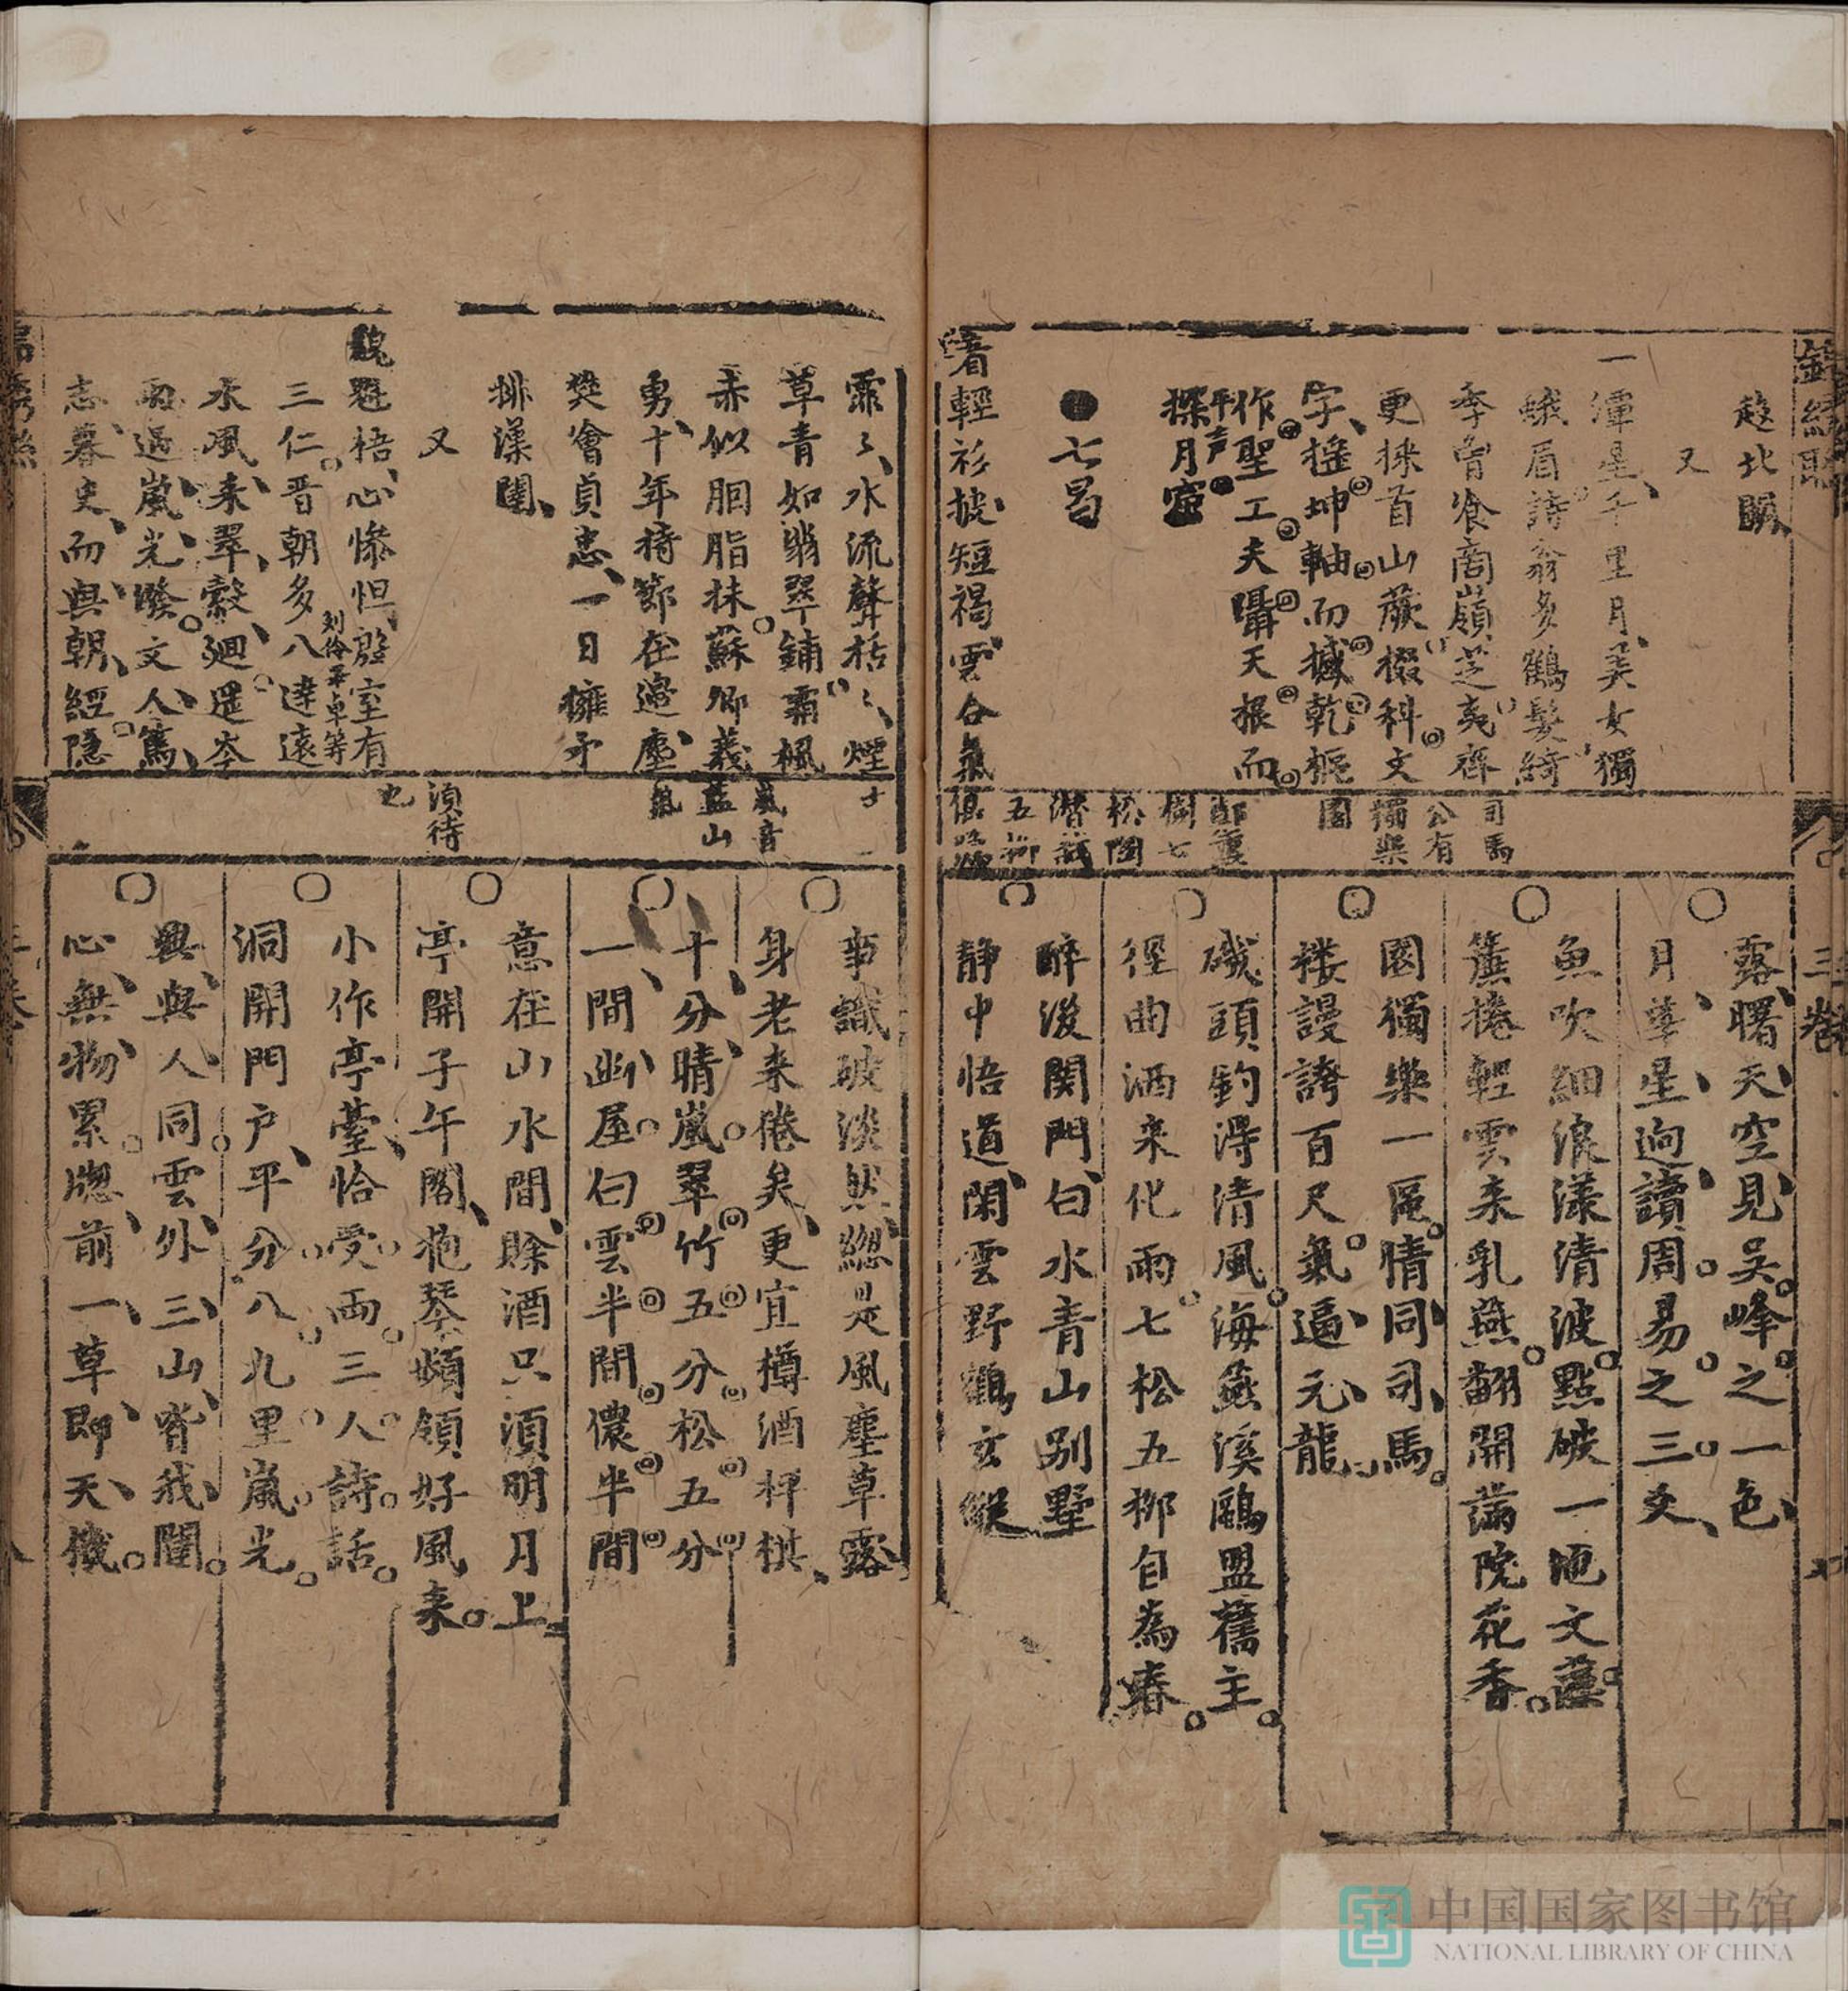 趍北闕
又
一潭星千里月美女獨
蛾眉詩翁多鶴髮綺
季曾飡商嶺芝夷齊
更採首山蕨掇科文
字搖坤軸而撼乾樞
作聖工夫躡天根而
平声
探月窟
●七曷
看輕衫披短褐雲合氣
司馬
公有
獨樂
園
鄭薰
樹七
松陶
潛栽
五柳
俱號
三卷
露曙天空見吳峰之一色
月華星逈讀周易之三爻
魚吹細浪漾清波點破一池文藻
簾捲輕雲來乳燕翻開滿院花香
園獨樂一區情同司馬
樓謾誇百尺氣逼元龍
磯頭釣得清風海燕溪鷗盟舊主
徑曲洒來化雨七松五柳自為春
醉後関門白水青山別墅
靜中悟道閑雲野鶴玄蹤
霏〻水流聲栝〻煙
草青如翡翠鋪霜楓
赤似胭脂抹蘇卿義
勇十年持節在邊塵
樊噲貞忠一日擁矛
排漢闥
又
魏魁梧心慘怛殷室有
三仁晋朝多八達遠
劉伶畢卓等
水風来翠縠廻遥岑
雨過嵐光潑文人篤
志暮史而與朝經隐
嵐音
藍山
氣
須待
也
事識破淡然緫是風塵草露
身老来倦矣更宜樽酒枰棋
十分晴嵐翠竹五分松五分
一間幽屋白雲半間儂半間
意在山水間賖酒只須明月上
亭開子午閣抱琴頻領好風来
小作亭臺恰受两三人詩話
洞開門户平分八九里嵐光
興與人同雲外三山啻我闥
心無物累牕前一草即天機